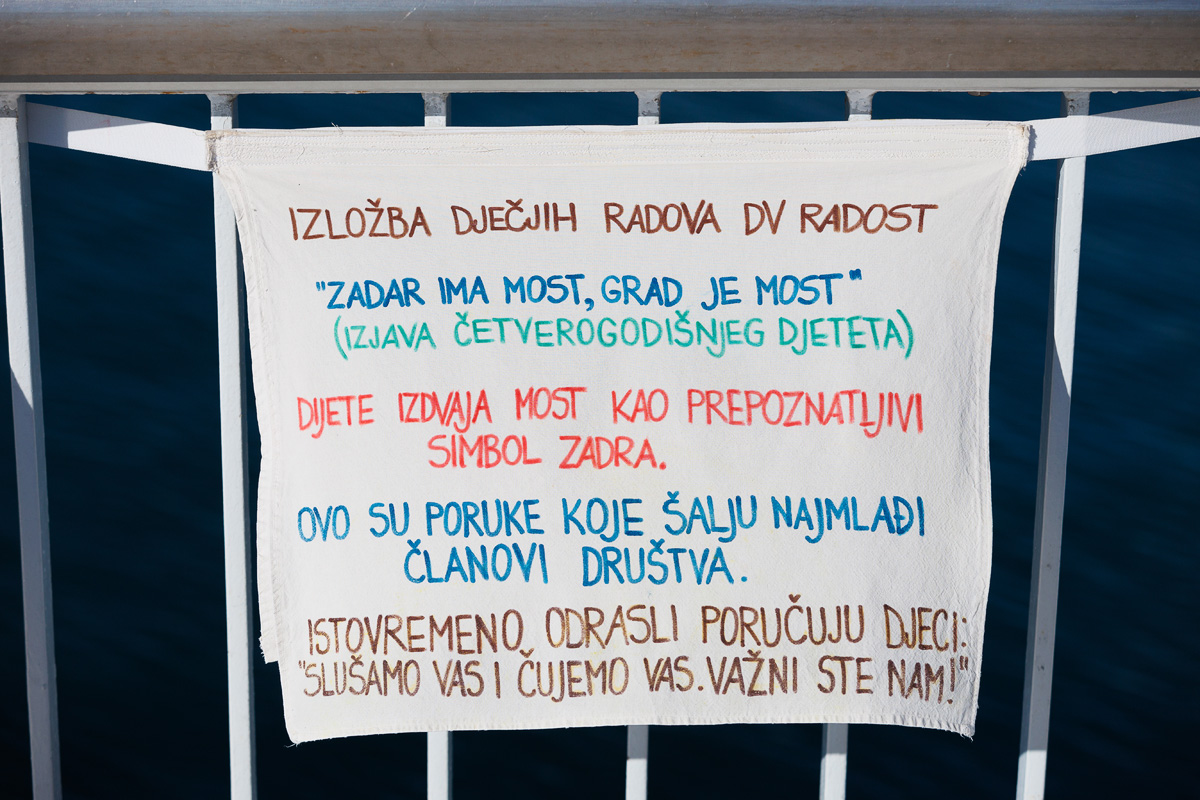 IZLOŽBA DJEČJIH RADOVA DV RADOST
"ZADAR IMA MOST, GRAD JE MOST"
(IZJAVA ČETVEROGODIŠNJEG DJETETA)
DIJETE IZDVAJA MOST KAO PREPOZNATLJIVI
SIMBOL ZADRA.
OVO SU PORUKE KOJE ŠALJU NAJMLAĐI
ČLANOVI DRUŠTVA.
ISTOVREMENO ODRASLI PORUČUJU DJECI:
"SLUŠAMO VAS I ČUJEMO VAS. VAŽNI STE NAM!"